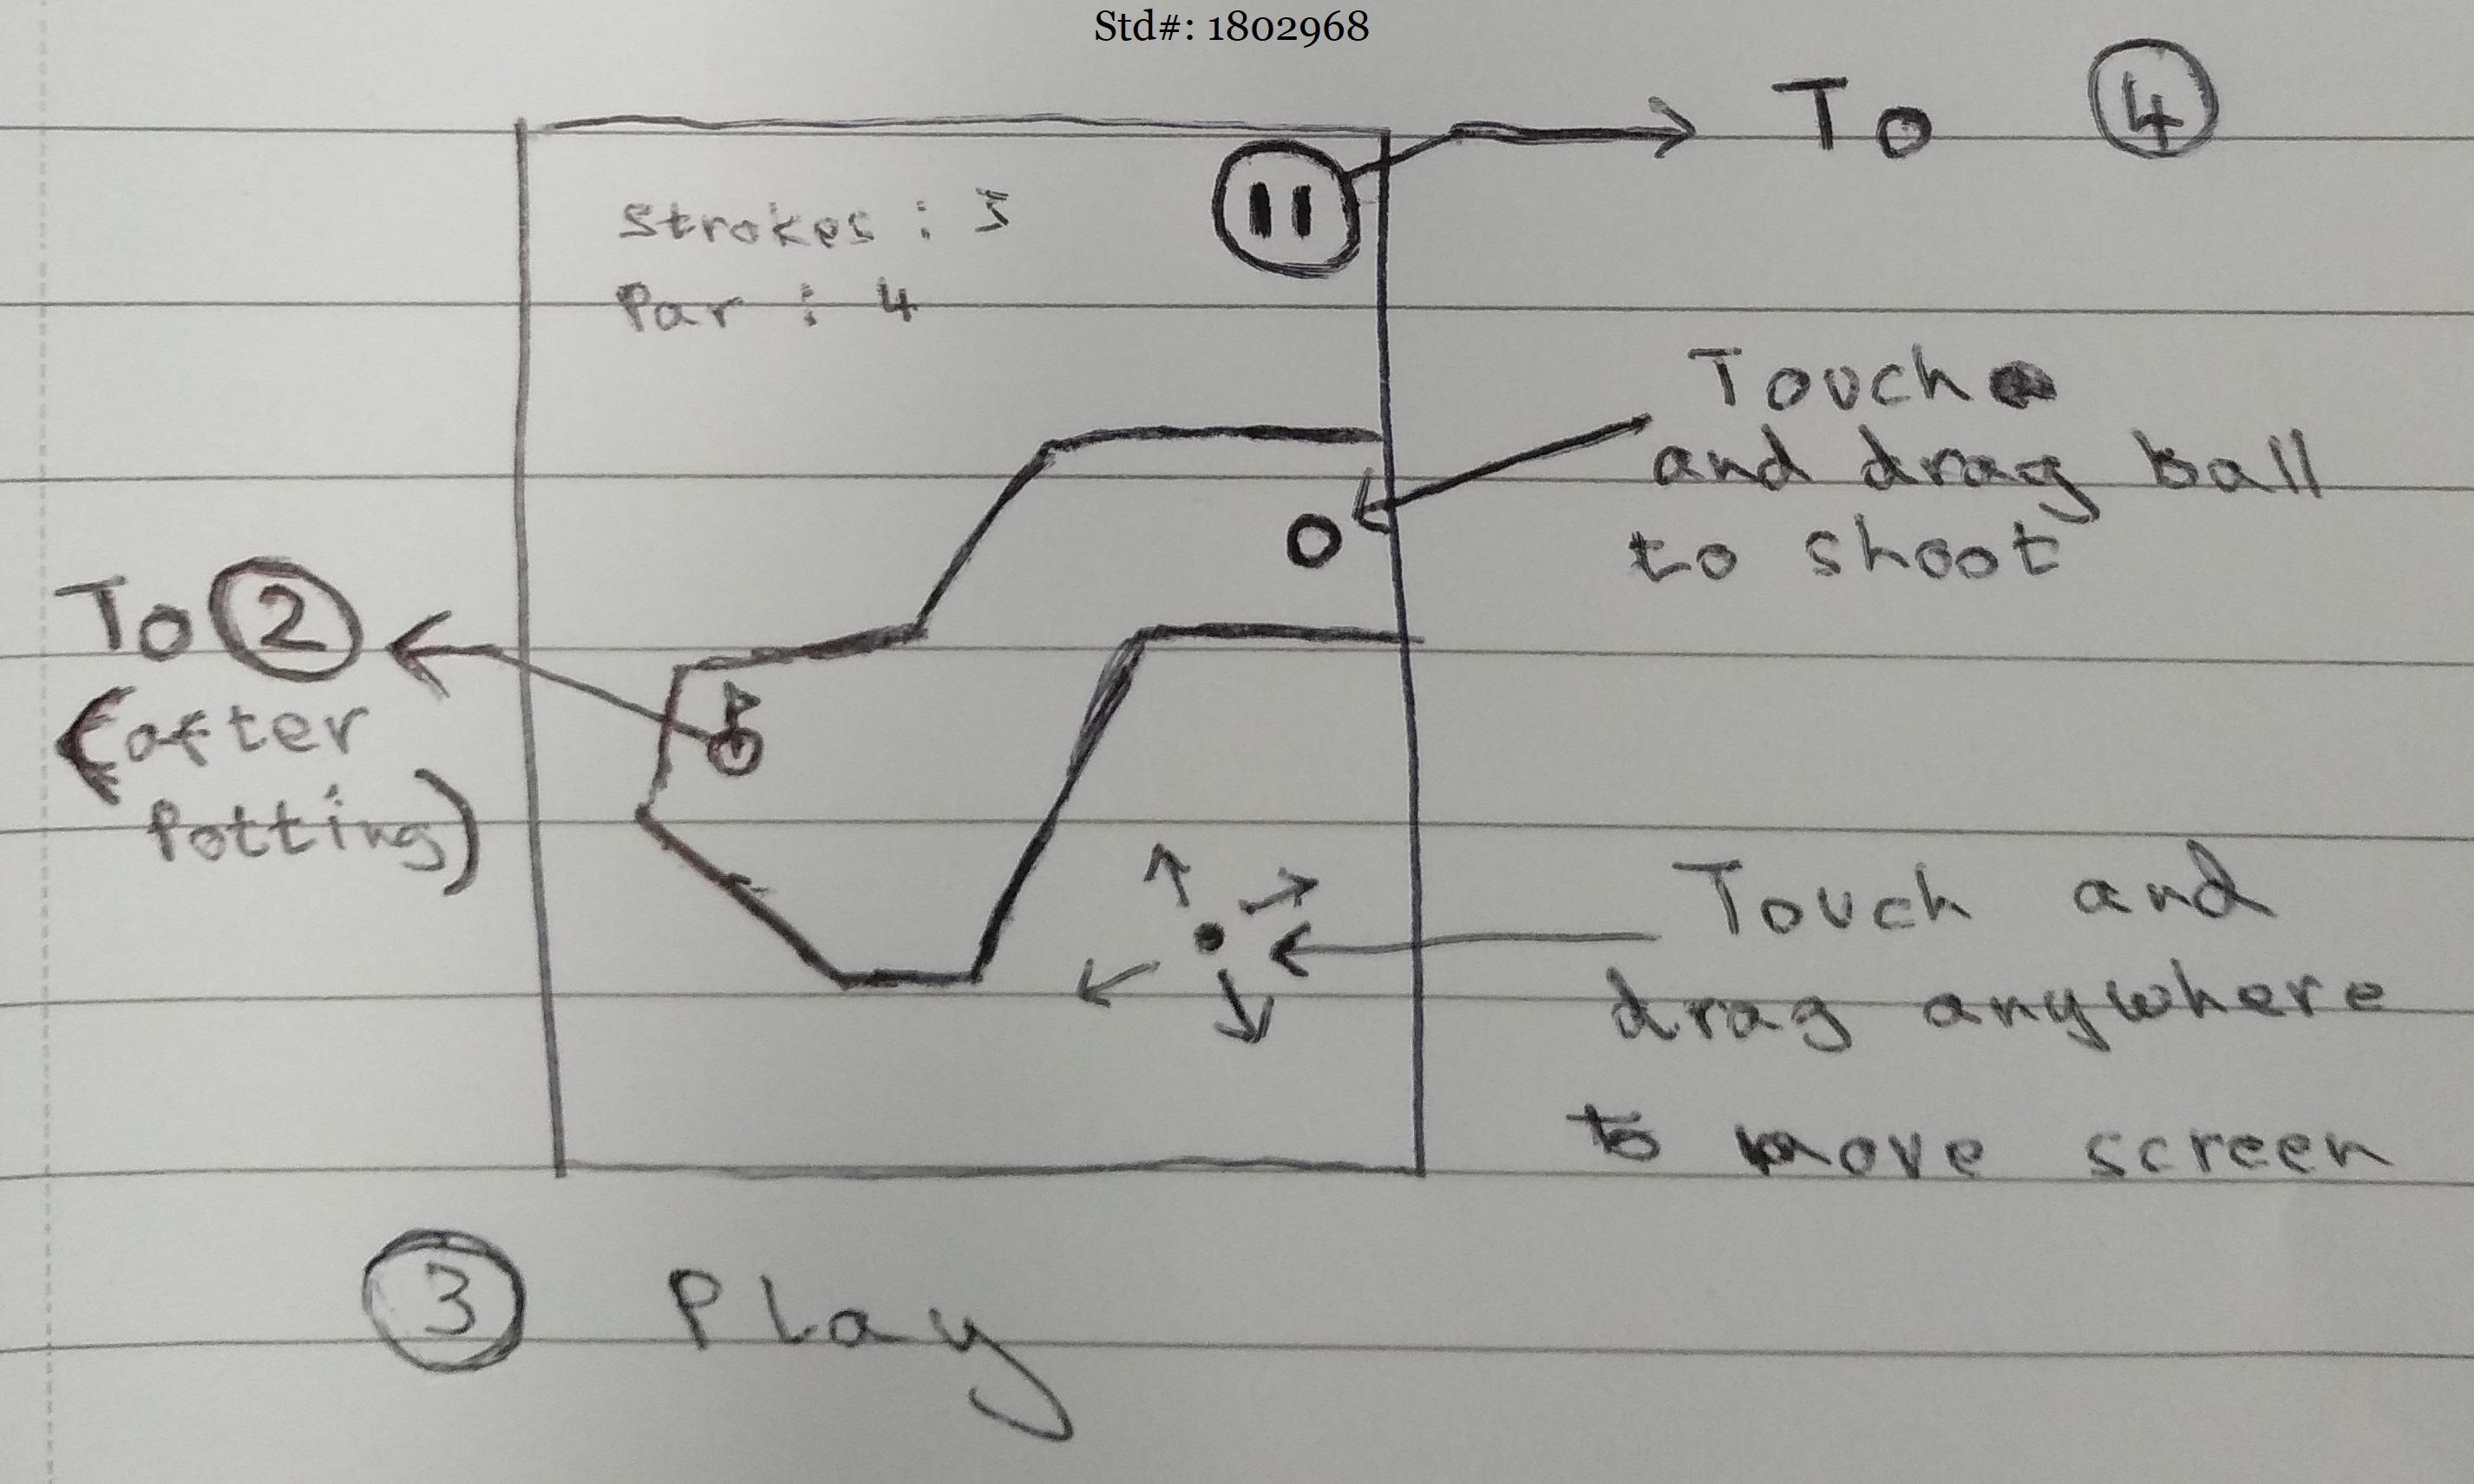 Std#: 1802968
To 4
Strokes : 3
Par : 4
Touch
and drag ball
to shoot
To 2
(after
Potting)
Touch and
drag anywhere
to move screen
3 Play